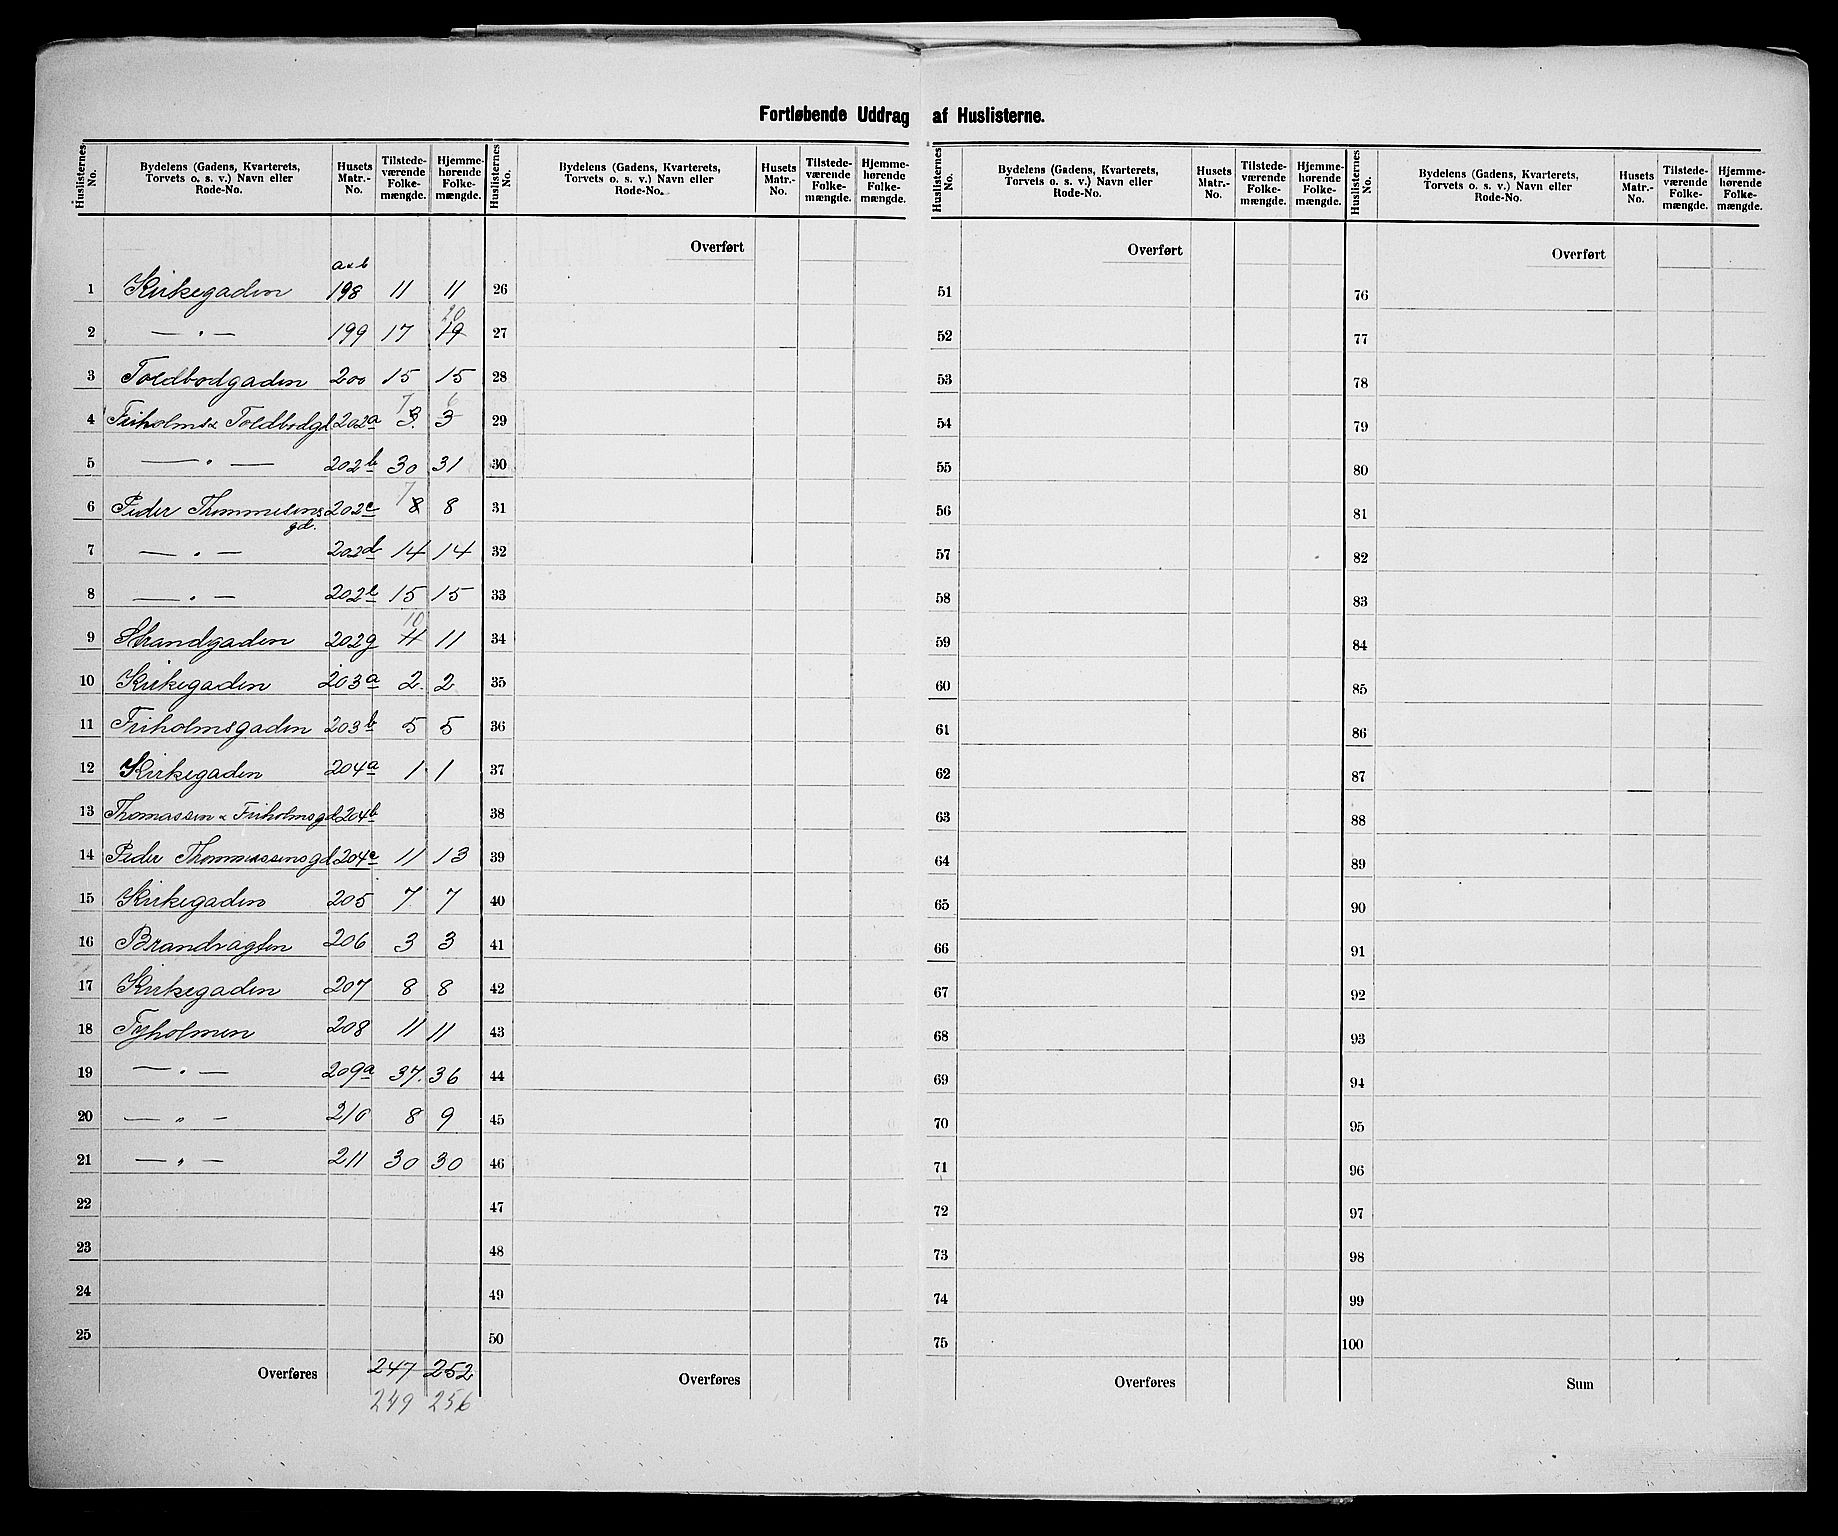 Fortløbende Uddrag af Huslisterne.
Huslisternes No. | Bydelens (Gadens, Kvarterets, Torvets o. s. v.) Navn eller Rode-No. | Husets Matr.-No. | Tilstedeværende Folkemængde. | Hjemmehørende Folkemængde. | Huslisternes No. | Bydelens (Gadens, Kvarterets, Torvets o. s. v.) Navn eller Rode-No. | Husets Matr.-No. | Tilstedeværende Folkemængde. | Hjemmehørende Folkemængde. | Huslisternes No. | Bydelens (Gadens, Kvarterets, Torvets o. s. v.) Navn eller Rode-No. | Husets Matr.-No. | Tilstedeværende Folkemængde. | Hjemmehørende Folkemængde. | Huslisternes No. | Bydelens (Gadens, Kvarterets, Torvets o. s. v.) Navn eller Rode-No. | Husets Matr.-No. | Tilstedeværende Folkemængde. | Hjemmehørende Folkemængde.
Overført Overført Overført
a & b
1 Kirkegaden 198 11 11 26 51 76
20
2 — " — 199 17 19 27 52 77
3 Toldbodgaden 200 15 15 28 53 78
7 6
4 Friholms & Toldbodgd 202a 3. 3 29 54 79
5 — " — 202b 30 31 30 55 80
7
6 Peder Thommesens gd. 202c 8 8 31 56 81
7 — " — 202d 14 14 32 57 82
8 — " — 202e 15 15 33 58 83
10
9 Strandgaden 202g 11 11 34 59 84
10 Kirkegaden 203a 2. 2 35 60 85
11 Friholmsgaden 203b 5 5 36 61 86
12 Kirkegaden 204a 1 1 37 62 87
13 Thomassen & Friholmsgd 204b 38 63 88
14 Peder Thommessensgd 204c 11 13 39 64 89
15 Kirkegaden 205 7 7 40 65 90
16 Brandvagten 206 3 3 41 66 91
17 Kirkegaden 207 8 8 42 67 92
18 Tyholmen 208 11 11 43 68 93
19 — " — 209a 37. 36 44 69 94
20 — " — 210 8 9 45 70 95
21 — " — 211 30 30 46 71 96
22 47 72 97
23 48 73 98
24 49 74 99
25 50 75 100
Overføres 247 252 Overføres Overføres Sum
249 256